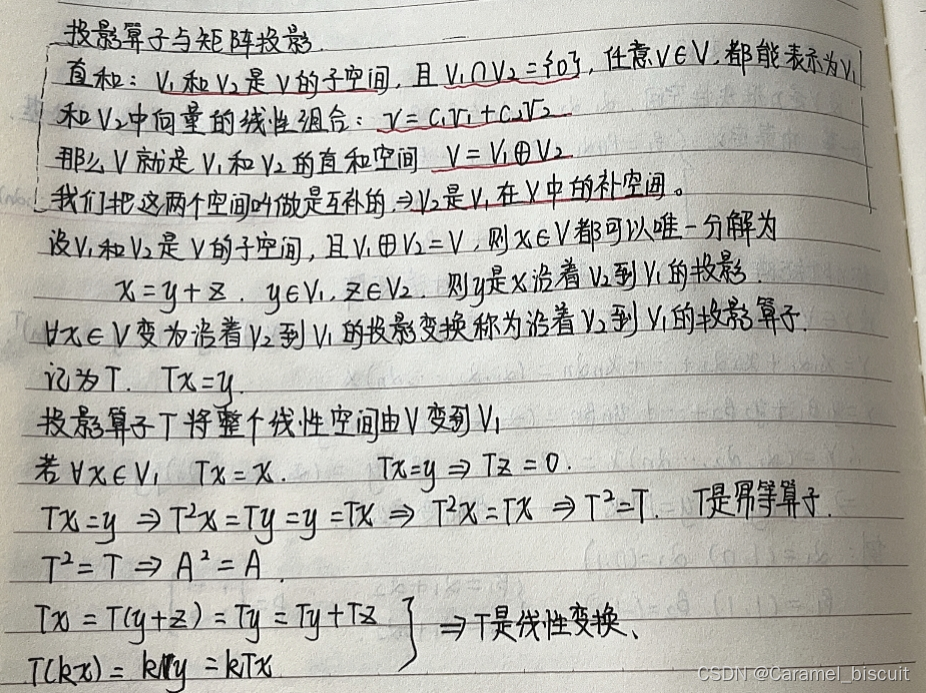 投影算子与矩阵投影.
直和：V₁和V₂是V的子空间，且V₁∩V₂={0}，任意V∈V,都能表示为V₁
和V₂中向量的线性组合：v=c₁v₁+c₂v₂
那么V就是V₁和V₂的直和空间 V=V₁⊕V₂
我们把这两个空间叫做是互补的→V₂是V₁在V中的补空间。
设V₁和V₂是V的子空间，且V₁⊕V₂=V，则x∈V都可以唯一分解为
x=y+z. y∈V₁, z∈V₂. 则y是x沿着V₂到V₁的投影.
∀x∈V变为沿着V₂到V₁的投影变换称为沿着V₂到V₁的投影算子.
记为T. Tx=y.
投影算子T将整个线性空间由V变到V₁
若∀x∈V₁ Tx=x. Tx=y⇒Tz=0.
Tx=y⇒T²x=Ty=y=Tx⇒T²x=Tx⇒T²=T. T是幂等算子.
T²=T⇒A²=A.
Tx=T(y+z)=Ty=Ty+Tz
⇒T是线性变换、
T(kx)=kTy=kTx
CSDN @Caramel_biscuit